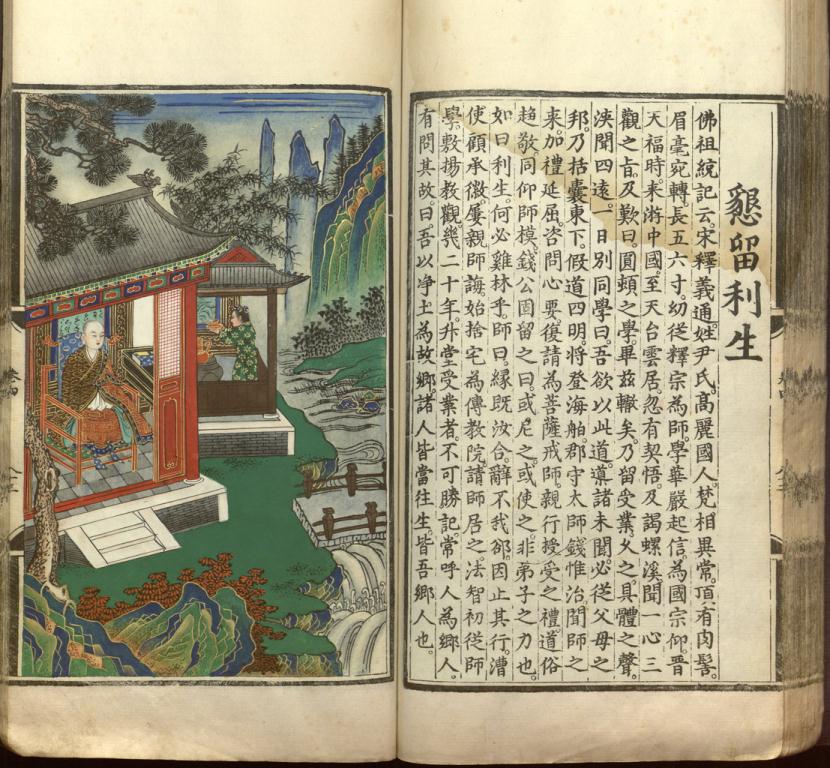 懇留利生
佛祖統記云。宋釋義通。姓尹氏。高麗國人。梵相異常。頂有肉髻。
眉毫宛轉長五六寸。幼從釋宗為師。學華嚴起信為國宗仰。晉
天福時。來游中國。至天台雲居忽有契悟。及謁螺溪。聞一心三
觀之旨。乃歎曰。圓頓之學。畢茲轍矣。乃留受業。久之。具體之聲。
浹聞四遠。一日別同學曰。吾欲以此道。導諸未聞。必從父母之
邦。乃括囊東下。假道四明。將登海舶。郡守太師錢惟治聞師之
來。加禮延屈。咨問心要。復請為菩薩戒師。親行授受之禮。道俗
趨敬。同仰師模。錢公固留之曰。或尼之。或使之。非弟子之力也。
如曰利生。何必雞林乎。師曰。緣既汝合。辭不我郤。因止其行。漕
使顧承徽。屢親師誨。始捨宅為傳教院。請師居之。法智初從師
學。敷揚教觀。幾二十年。升堂受業者。不可勝記。常呼人為鄉人。
有問其故。曰。吾以淨土為故鄉。諸人皆當往生。皆吾鄉人也。